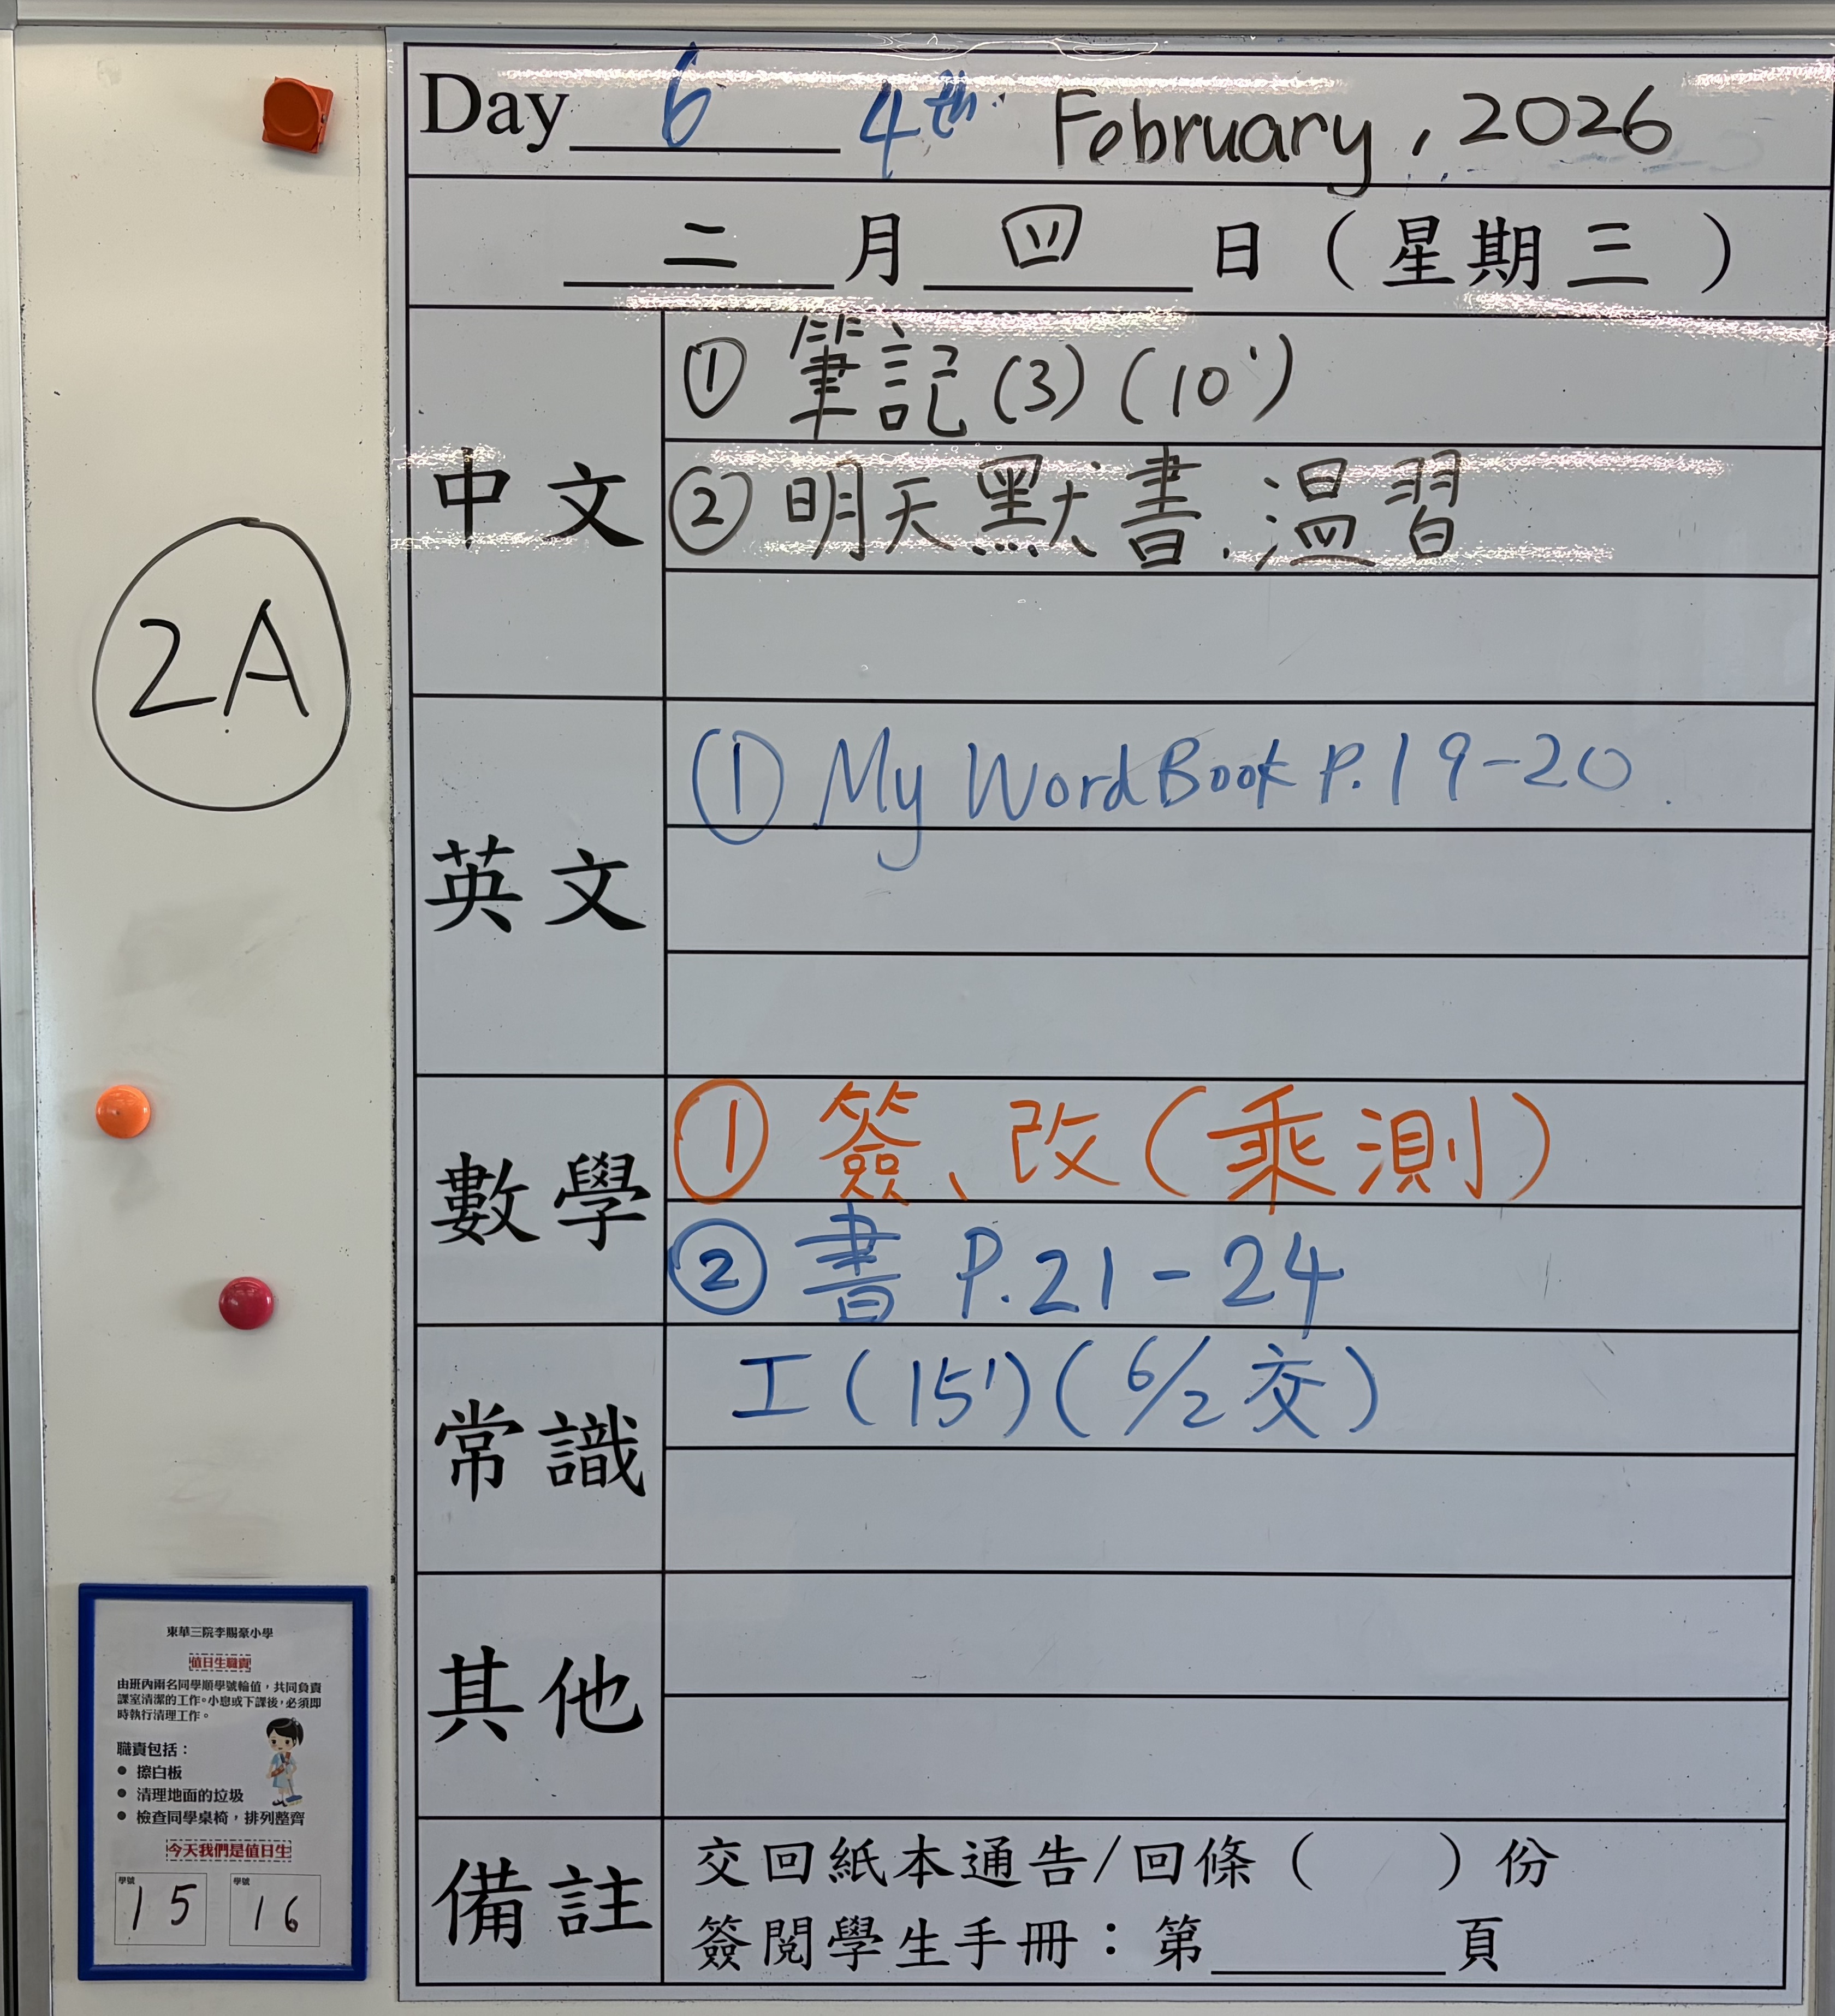 Day 6 4th February, 2026
二 月 四 日 ( 星 期 三 )
中文
① 筆記 (3) (10')
② 明天默書、溫習
英文
① My WordBook P.19-20
數學
① 簽、改 (乘測)
② 書 P.21-24
常識
工 (15') (6/2 交)
其他
備註
交回紙本通告/回條 ( ) 份
簽閱學生手冊：第______頁
2A
東華三院李賜豪小學
值日生職責
由班內兩名同學順學號輪值，共同負責
課室清潔的工作。小息或下課後，必須即
時執行清理工作。
職責包括：
● 擦白板
● 清理地面的垃圾
● 檢查同學桌椅，排列整齊
今天我們是值日生
學號 15 學號 16